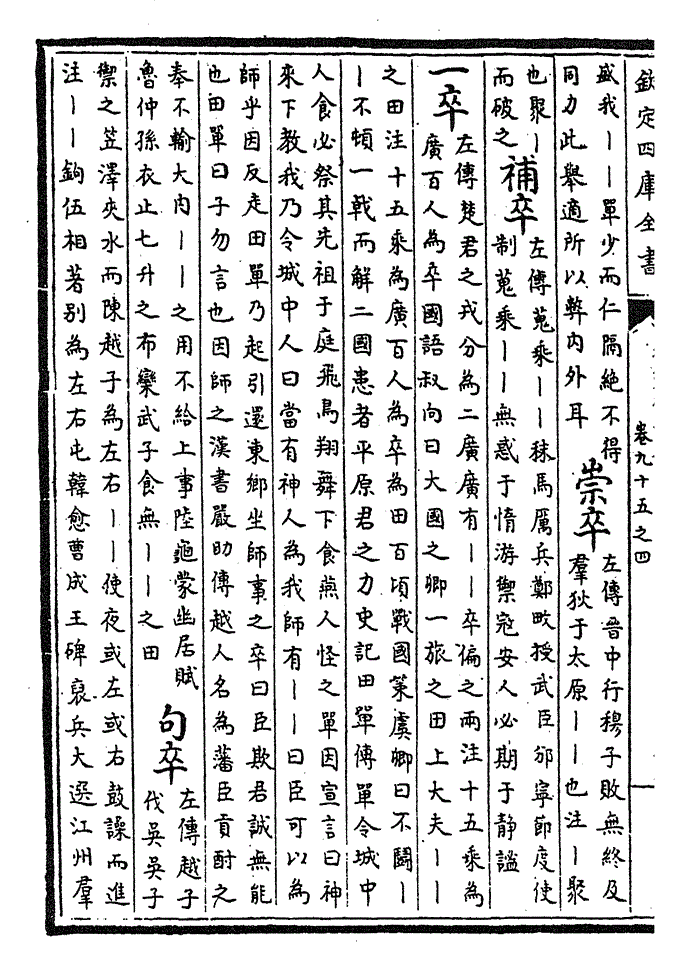 欽定四庫全書
卷九十五之四
盛我丨丨單少而仁隔絶不得
同力此舉適所以弊内外耳
崇卒
左傳晉中行穆子敗無終及
羣狄于太原丨丨也注丨聚
也聚丨
而破之
補卒
左傳蒐乘丨丨秣馬厲兵鄭畋授武臣邠寧節度使
制蒐乘丨丨無惑于惰游禦寇安人必期于静謐
一卒
左傳楚君之戎分為二廣廣有丨丨卒偏之兩注十五乘為
廣百人為卒國語叔向曰大國之卿一旅之田上大夫丨丨
之田注十五乘為廣百人為卒為田百頃戰國策虞卿曰不鬭丨
丨不頓一戟而解二國患者平原君之力史記田單傳單令城中
人食必祭其先祖于庭飛鳥翔舞下食燕人怪之單因宣言曰神
來下教我乃令城中人曰當有神人為我師有丨丨曰臣可以為
師乎因反走田單乃起引還東鄉坐師事之卒曰臣欺君誠無能
也田單曰子勿言也因師之漢書嚴助傳越人名為藩臣貢酎之
奉不輸大内丨丨之用不給上事陸龜蒙幽居賦
魯仲孫衣止七升之布欒武子食無丨丨之田
句卒
左傳越子
伐吳吳子
禦之笠澤夾水而陳越子為左右丨丨使夜或左或右鼓譟而進
注丨丨鉤伍相著别為左右屯韓愈曹成王碑裒兵大選江州羣